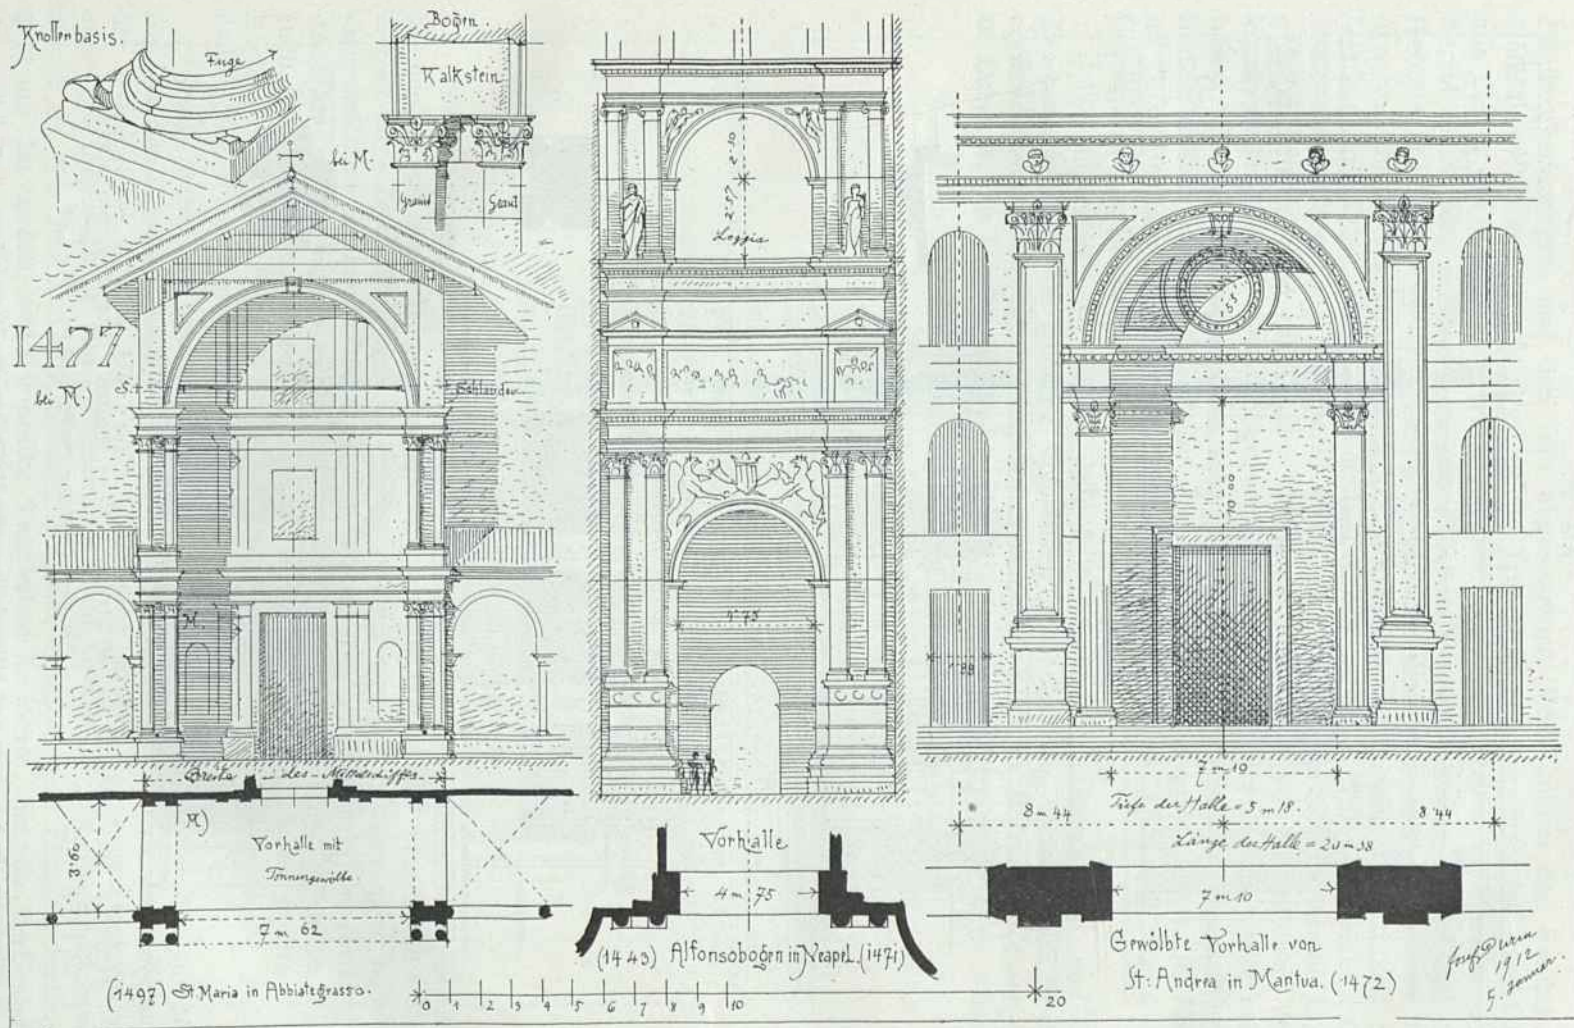 Knollenbasis.
Fuge
Bogen.
Kalkstein
bei M.
Granit
Granit
1477
bei M.)
S.
Schlauder
M.
Breite des Mittelschiffes
M)
Vorhalle mit
Tonnengewölbe.
3.60
7 m 62
(1497) St. Maria in Abbiategrasso.
2.57
Loggia
Vorhalle
4 m. 75
(1443) Alfonsobogen in Neapel. (1471)
0 1 2 3 4 5 6 7 8 9 10 20
1.53
7 m 10
8 m 44
Tiefe der Halle = 5 m 18.
8.44
Länge der Halle =
7 m 10
Gewölbte Vorhalle von
St. Andrea in Mantua. (1472)
Josef Durm
1912
5. Januar.